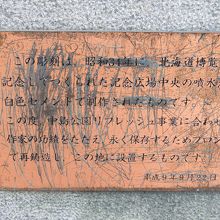 この彫刻は、昭和34年に、北海道博覧
記念してつくられた記念広場中央の噴水
白色セメントで制作されたものです。
この度、中島公園リフレッシュ事業に合わせ
作家の功績をたたえ、永く保存するためブロン
で再鋳造し、この地に設置するものです。
平成9年9月22日